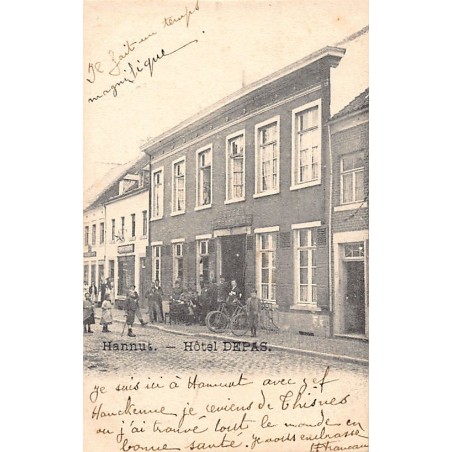 Il fait un temps
magnifique.
Hannut. — Hôtel DEPAS.
je suis ici à Hannut avec
Hanchenne je reviens de Thisnes
ou j'ai trouvé tout le monde en
bonne santé. Je vous embrasse